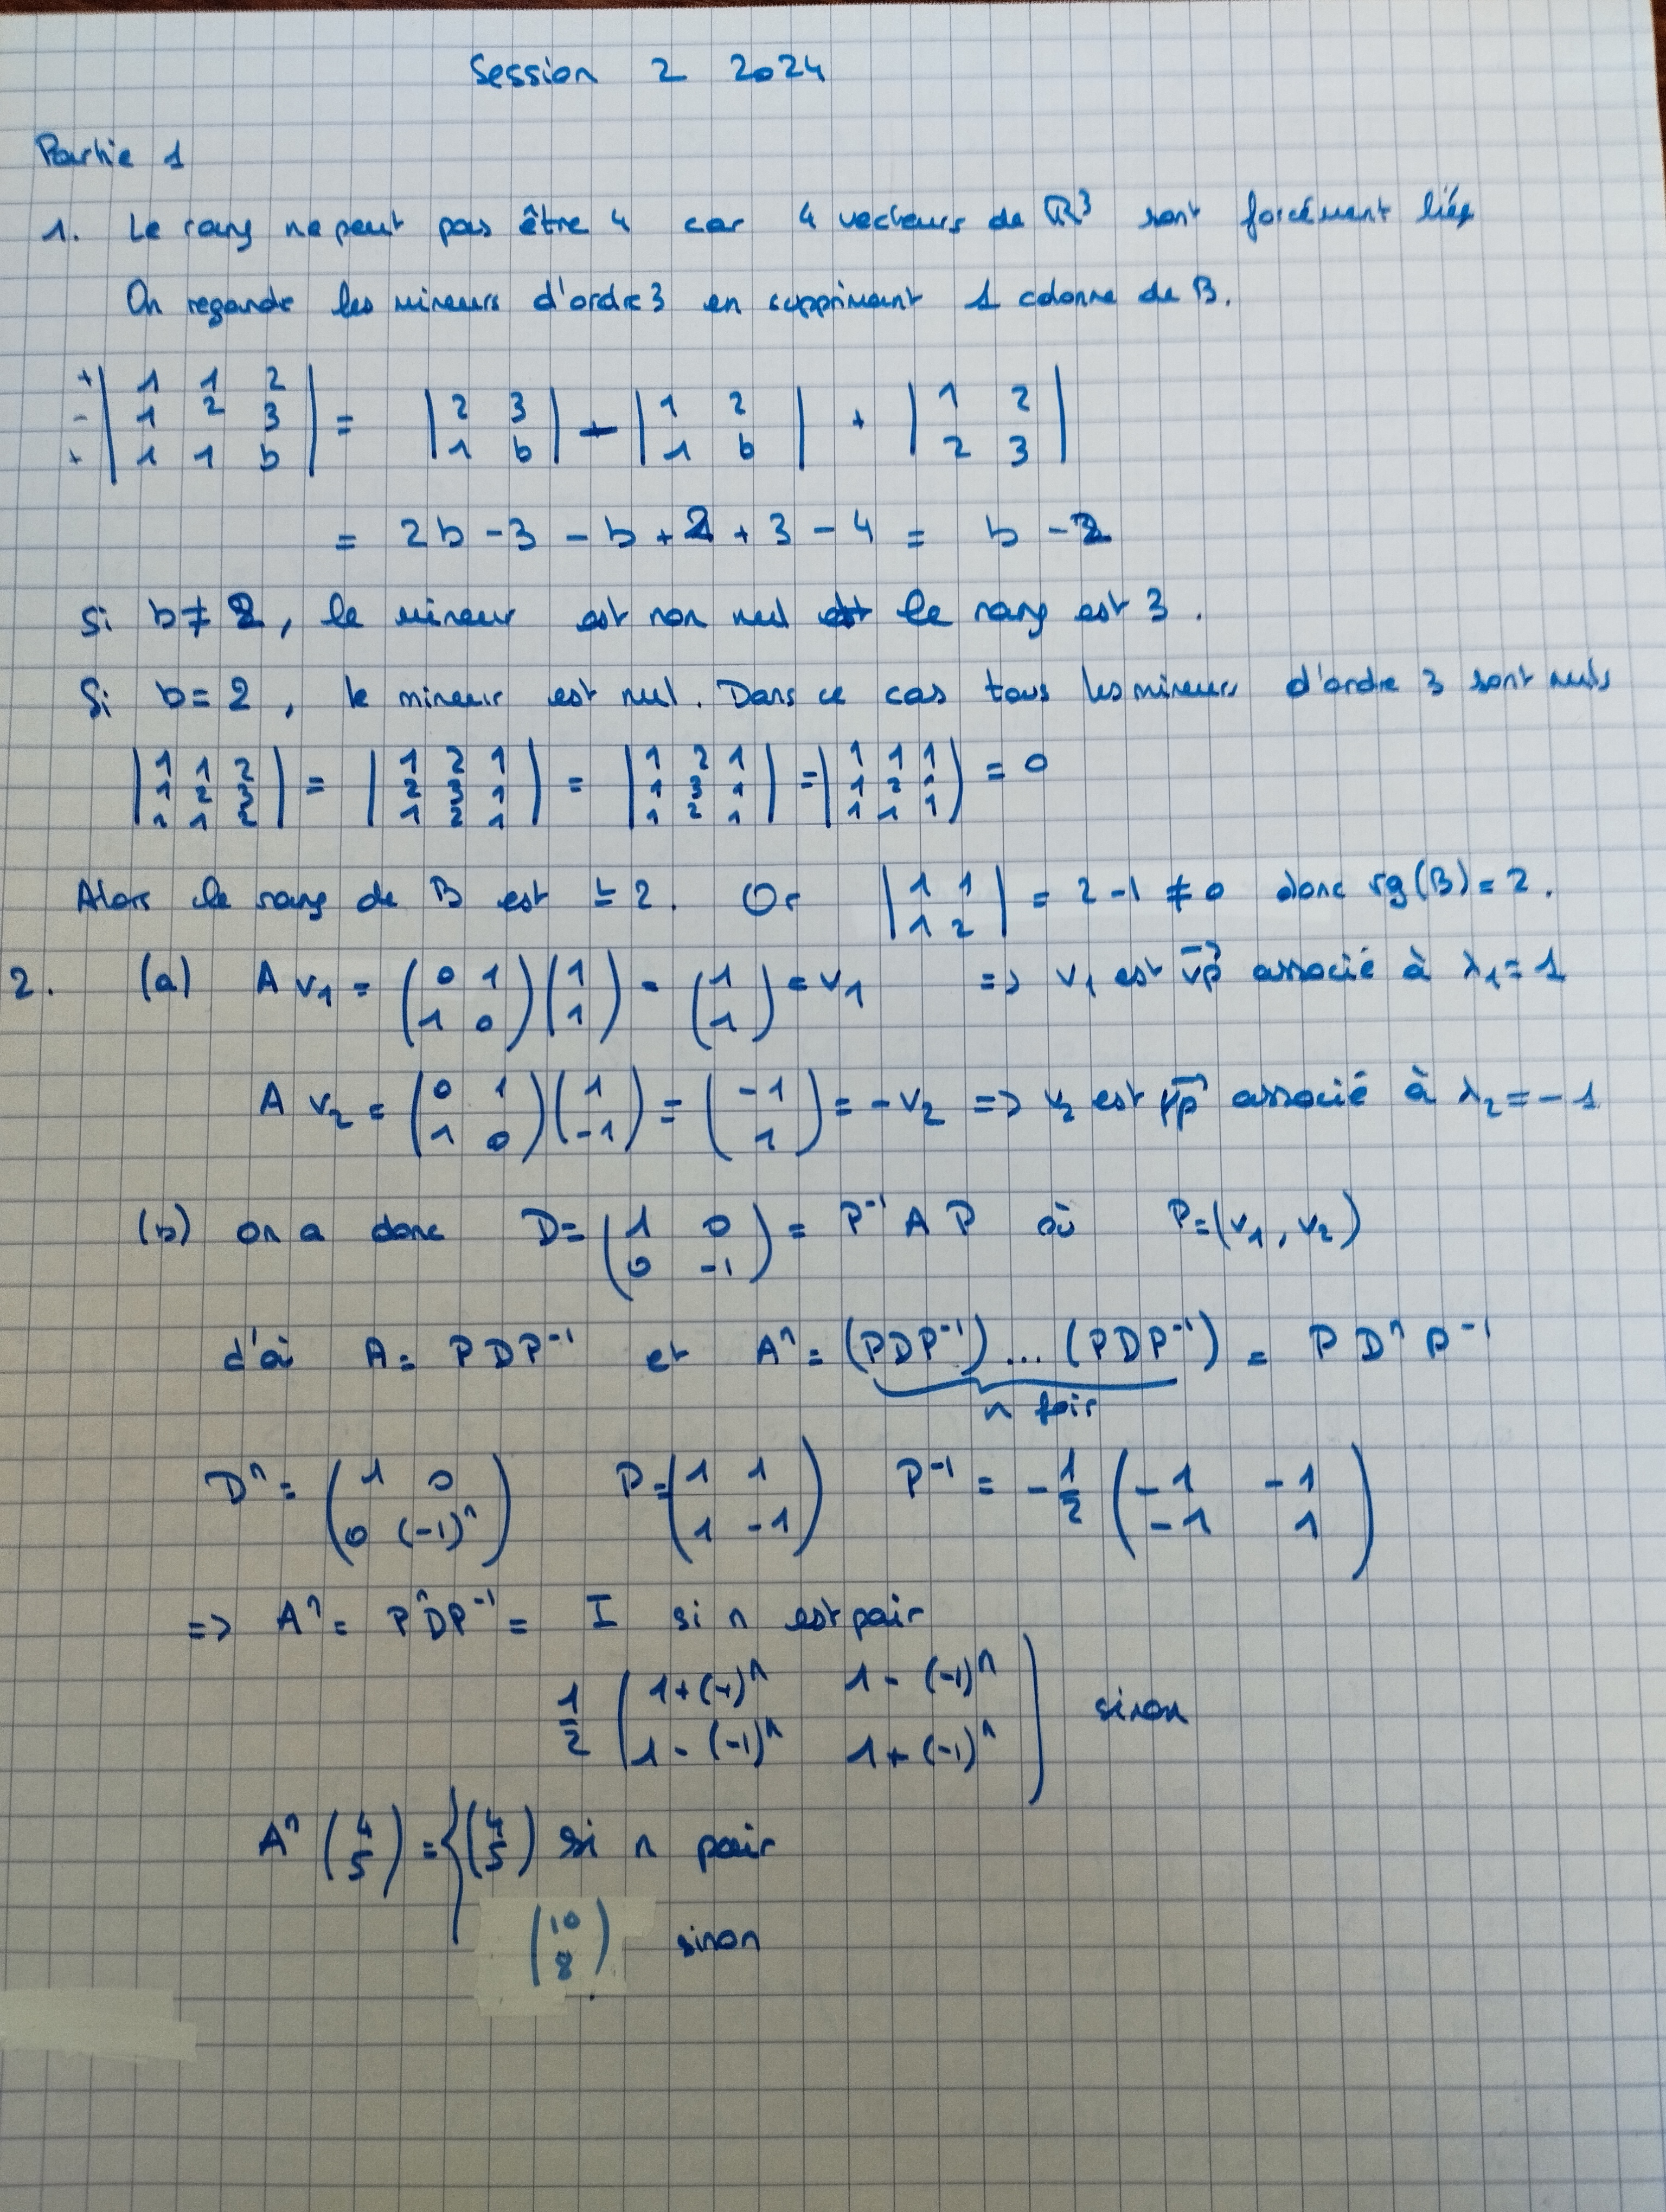 Session 2 2024
Partie 1
1. Le rang ne peut pas être 4 car 4 vecteurs de ℝ³ sont forcément liés
On regarde les mineurs d'ordre 3 en supprimant 1 colonne de B.
+ | 1 1 2 |
- | 1 2 3 | = | 2 3 ; 1 b | - | 1 2 ; 1 b | + | 1 2 ; 2 3 |
+ | 1 1 b |
= 2b - 3 - b + 2 + 3 - 4 = b - 2
Si b ≠ 2, le mineur est non nul le rang est 3.
Si b = 2, le mineur est nul. Dans ce cas tous les mineurs d'ordre 3 sont nuls
| 1 1 2 ; 1 2 3 ; 1 1 2 | = | 1 2 1 ; 2 3 1 ; 1 2 1 | = | 1 2 1 ; 1 3 1 ; 1 2 1 | = | 1 1 1 ; 1 2 1 ; 1 1 1 | = 0
Alors le rang de B est ≤ 2. Or | 1 1 ; 1 2 | = 2 - 1 ≠ 0 donc rg(B) = 2.
2. (a) A v₁ = (0 1 ; 1 0) (1 ; 1) = (1 ; 1) = v₁ => v₁ est vp associé à λ₁ = 1
A v₂ = (0 1 ; 1 0) (1 ; -1) = (-1 ; 1) = -v₂ => v₂ est vp associé à λ₂ = -1
(b) on a donc D = (1 0 ; 0 -1) = P⁻¹ A P où P = (v₁, v₂)
d'où A = P D P⁻¹ et Aⁿ = (PDP⁻¹) ... (PDP⁻¹) = P Dⁿ P⁻¹
n fois
Dⁿ = (1 0 ; 0 (-1)ⁿ) P = (1 1 ; 1 -1) P⁻¹ = -1/2 (-1 -1 ; -1 1)
=> Aⁿ = P Dⁿ P⁻¹ = I si n est pair
1/2 (1+(-1)ⁿ 1-(-1)ⁿ ; 1-(-1)ⁿ 1+(-1)ⁿ) sinon
Aⁿ (4 ; 5) = { (4 ; 5) si n pair
(10 ; 8) sinon